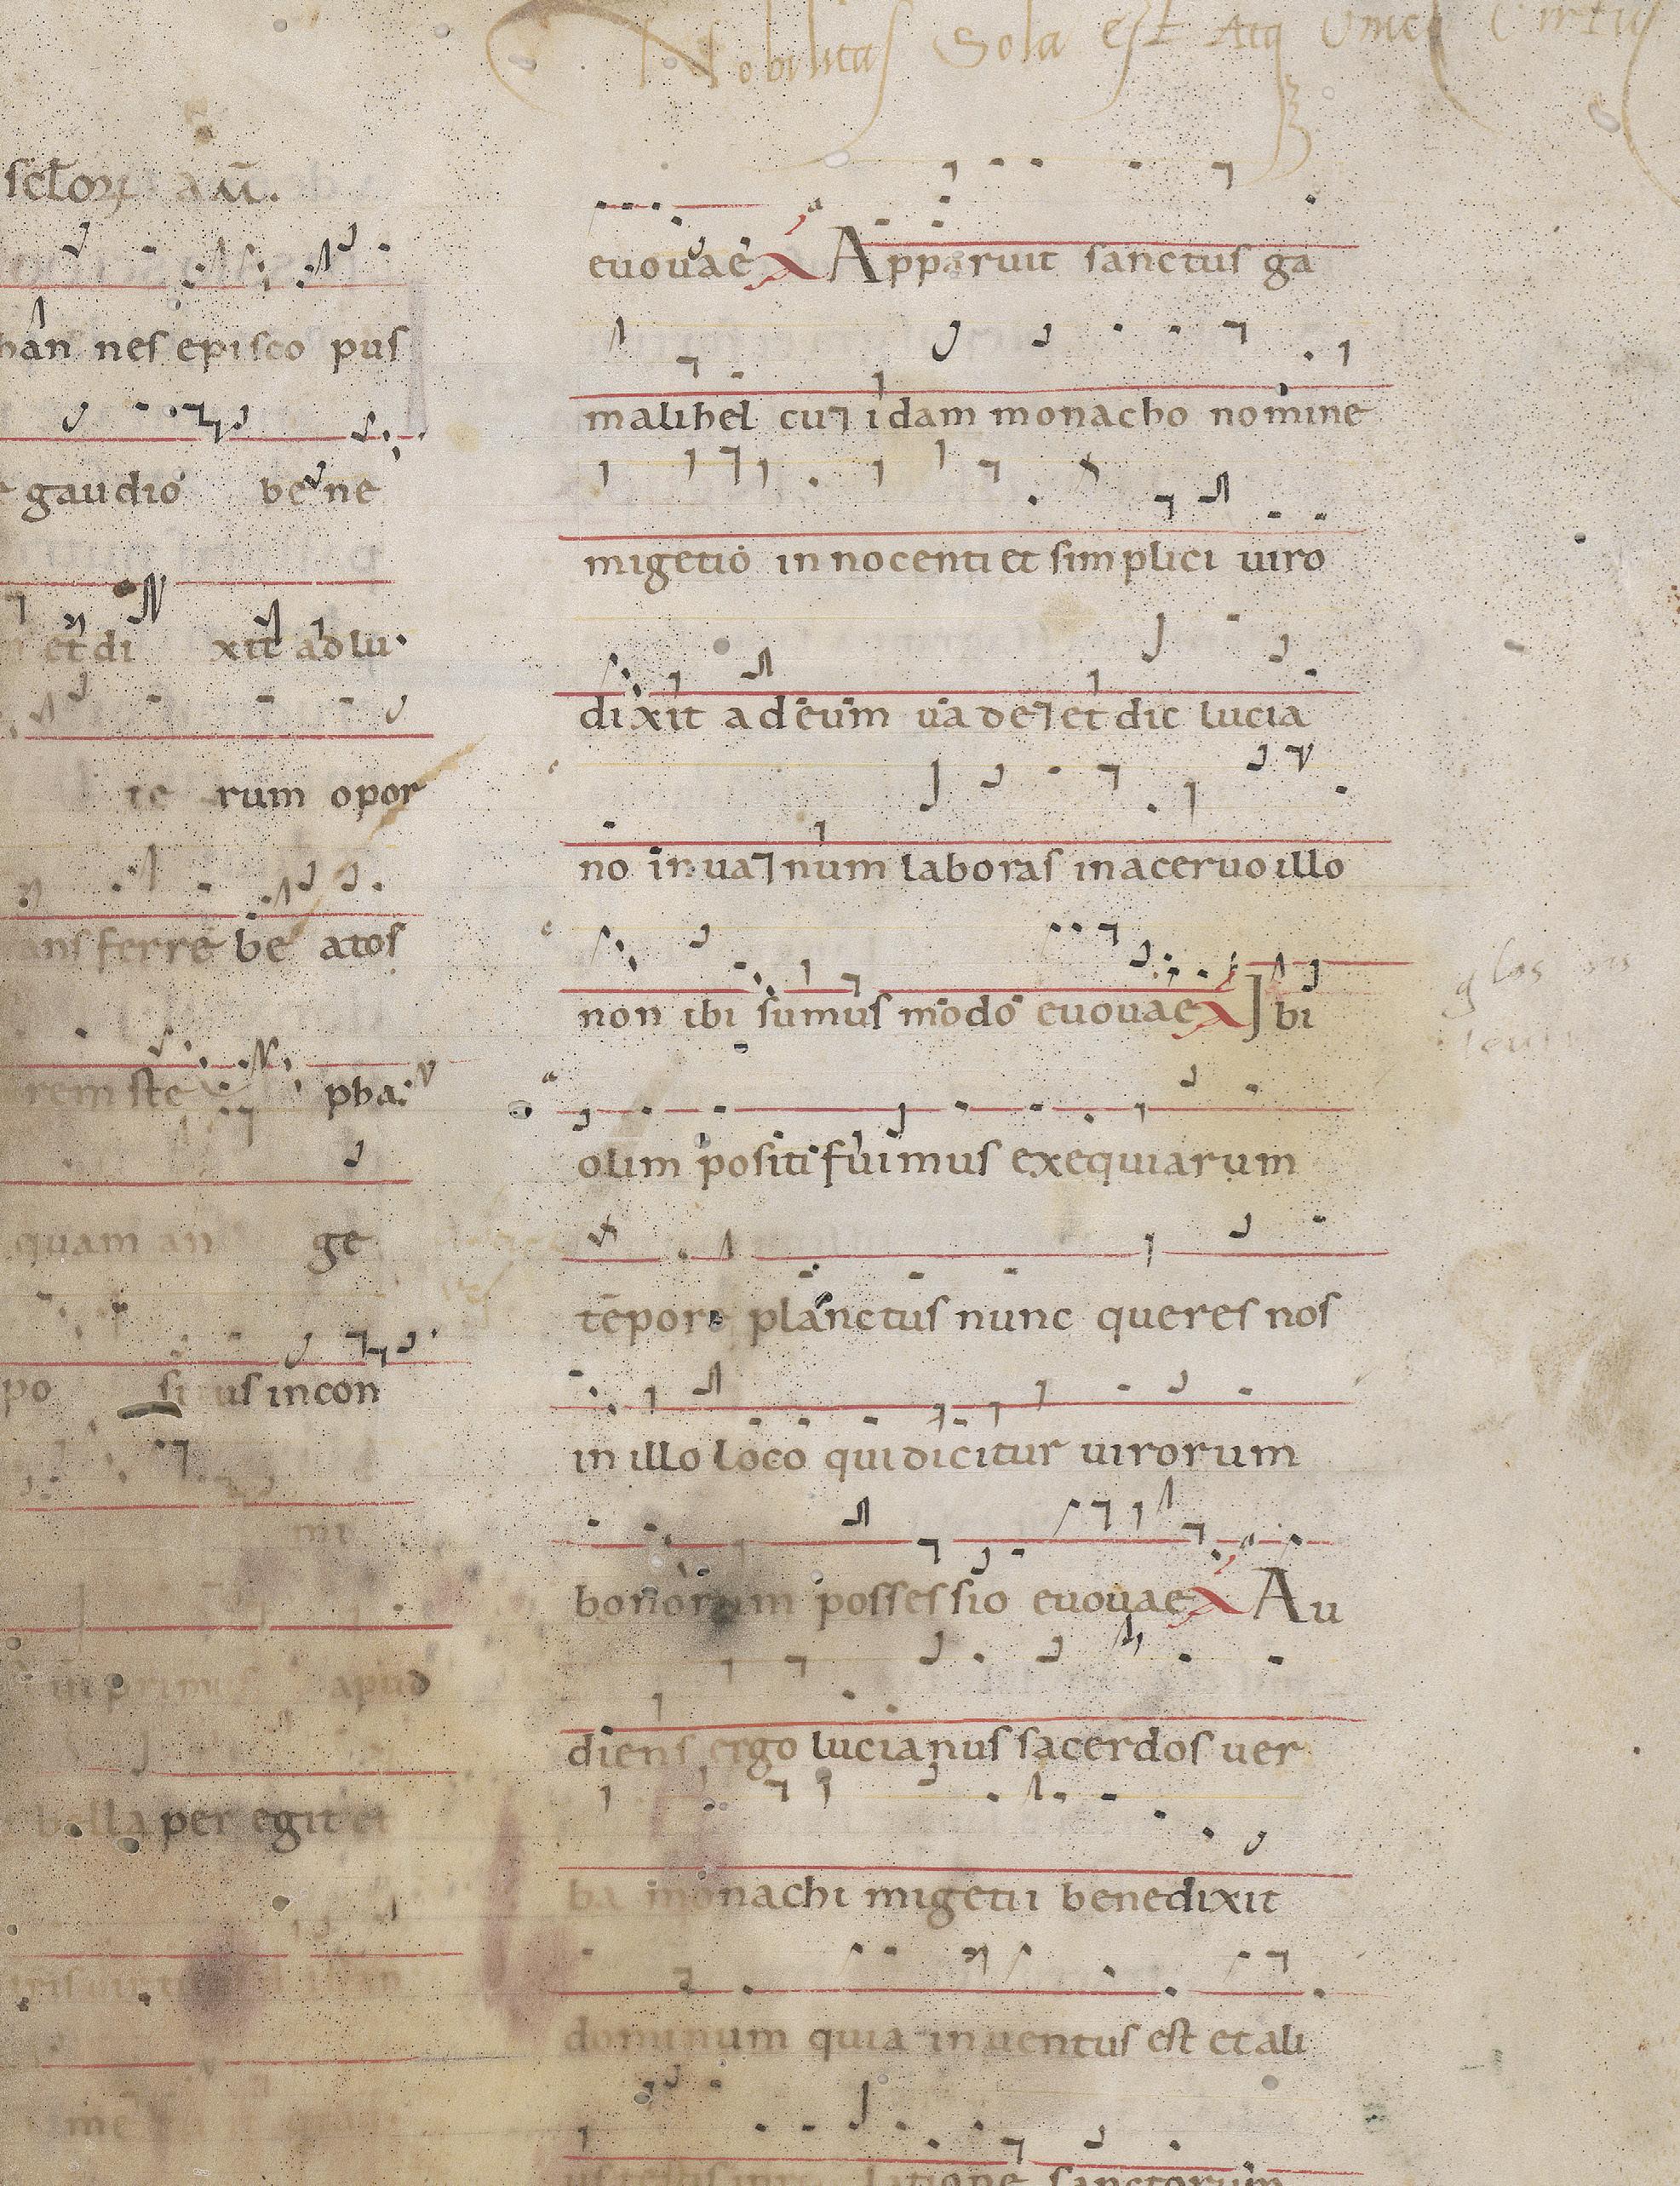 Nobilitas Sola est Atq Unica Virtus
sctoꝝ
nes episco pus
gaudio bene
et di xit ad lu
rum opor
ferre be atos
rem ste pha
quam an ge
po si us in con
mi
primus apud
bella per egit et
me
euouae Apparuit sanctus ga
malihel cu idam monacho nomine
migetio in nocenti et sim plici uiro
dixit ad eum ua de et dic lucia
no in ua num laboras in aceruo illo
non ibi sumus modo euouae Ibi
olim positi fuimus exequiarum
tēpore planctus nunc queres nos
in illo loco qui dicitur uirorum
bonorum possessio euouae Au
diens ergo lucianus sacerdos uer
ba monachi migetii benedixit
dominum quia inuentus est et ali
latione sanctorum